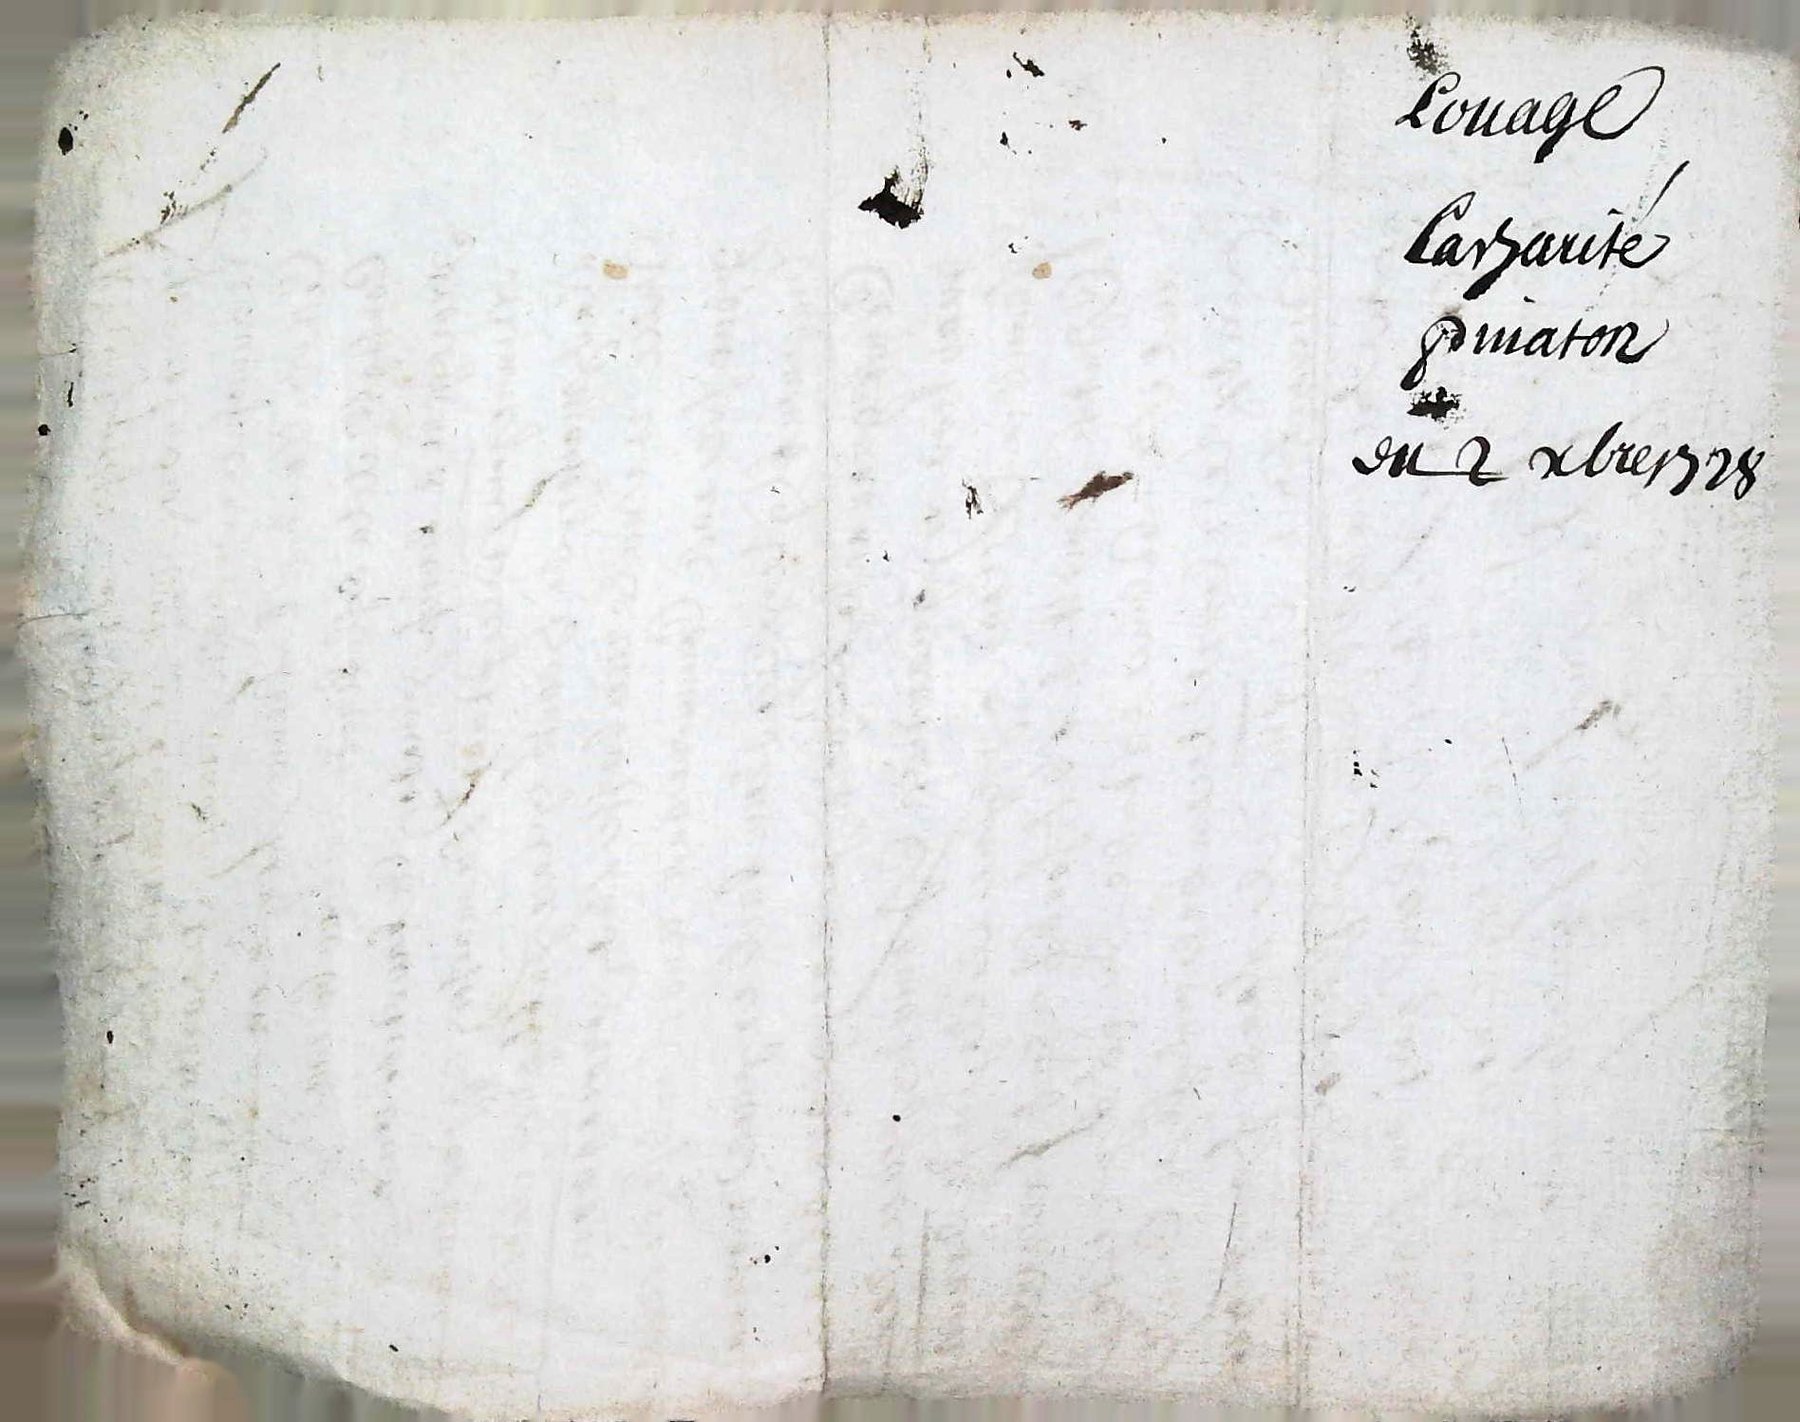 Louage
Cazarité
pinaton
du 2 xbre 1778